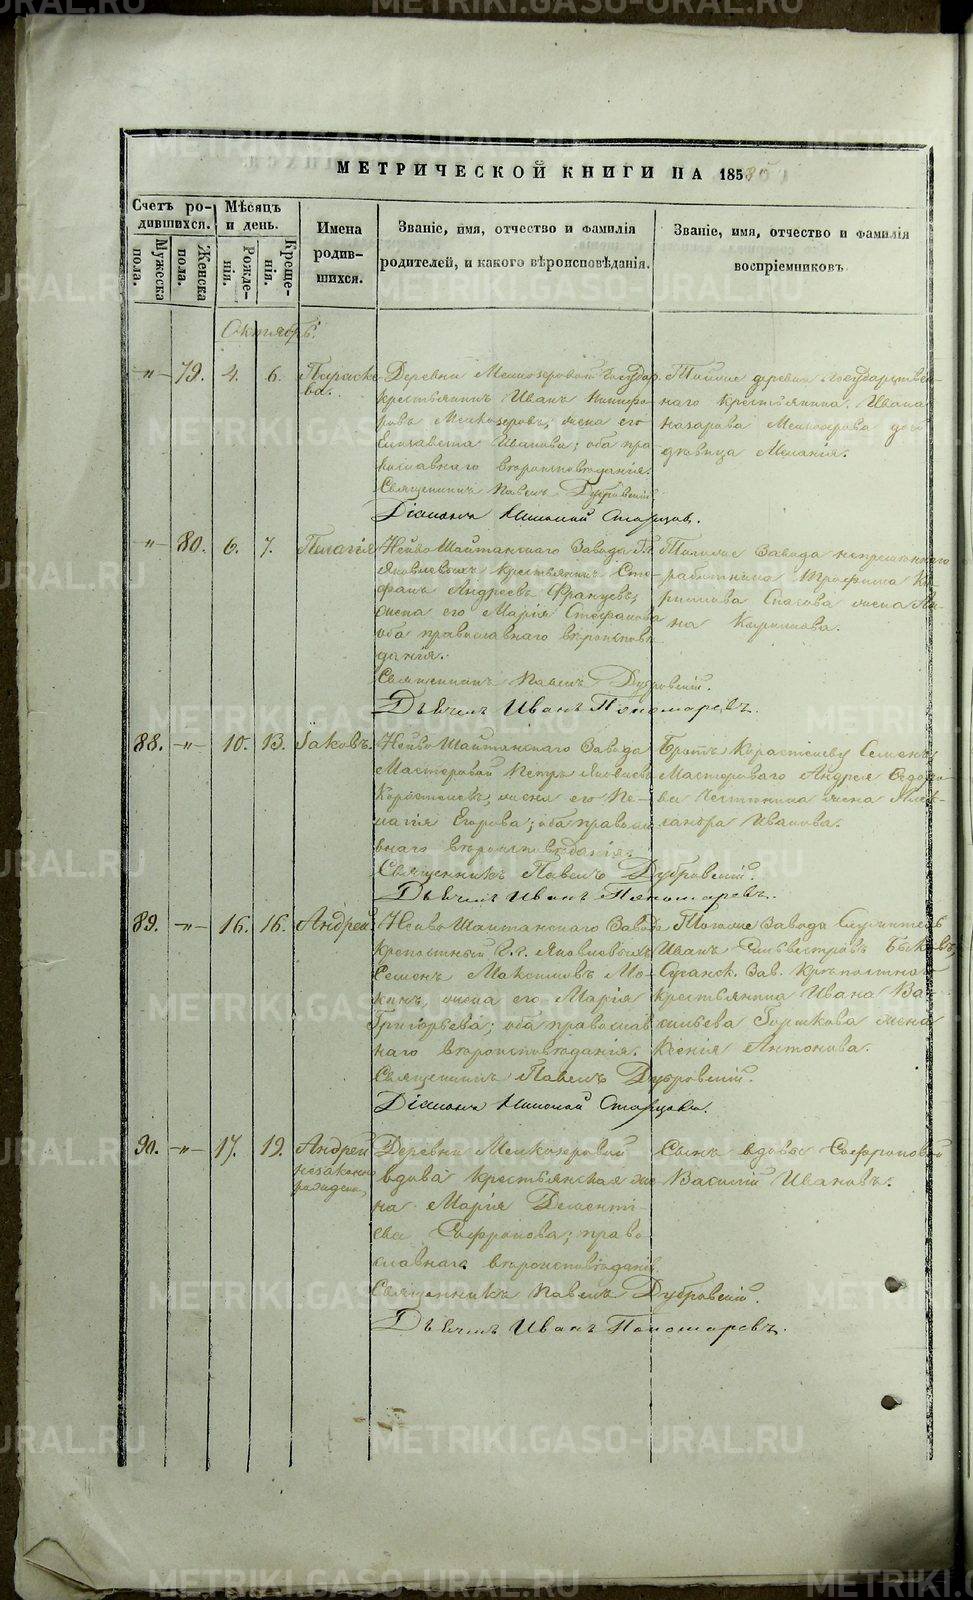 METRIKI.GASO-URAL.RU
МЕТРИЧЕСКОЙ КНИГИ НА 185
Счетъ ро-
дившихся.
Мѣсяцъ
и день.
Мужеска
пола.
Женска
пола.
Рожде-
нія.
Креще-
нія.
Имена
родив-
шихся.
Званіе, имя, отчество и фамилія
родителей, и какого вѣроисповѣданія.
Званіе, имя, отчество и фамилія
воспріемниковъ
Октябрь.
-"- 79. 4. 6. Параске-
ва.
Деревни Мелкозеровой Государ.
крестьянинъ Иванъ
Мелкозеровъ, жена его
Елизавета Иванова; оба пра
вославнаго вѣроисповѣданія.
Священникъ Павелъ Дубровскій
Діаконъ Николай Старцовъ.
Тойже деревни Государствен-
наго Крестьянина Ивана
Назарова Мелкозерова до
дѣвица Меланія.
-"- 80. 6. 7. Пелагія
Нейво Шайтанскаго Завода Гг.
Яковлевыхъ крестьянинъ Сте-
фанъ Андреевъ Францевъ,
жена его Марія Стефанова
оба православнаго вѣроисповѣ
данія.
Священникъ Павелъ Дубровскій.
Дьячекъ Иванъ Пономаревъ.
Тогоже Завода
работника Трофима Ки-
рилова Спасова жена Ан-
на Кирилова.
88. -"- 10. 13. Іаковъ.
Нейво Шайтанскаго Завода
Мастеровой Петръ Яковлевъ
Коростелевъ, жена его Пе-
лагія Егорова; оба правосла
внаго вѣроисповѣданія.
Священникъ Павелъ Дубровскій.
Дьячекъ Иванъ Пономаревъ.
Братъ Коростелеву Семенъ,
Мастероваго Андрея Ѳедоро-
ва жена Алек-
сандра Иванова.
89. -"- 16. 16. Андрей
Нейво Шайтанскаго Завода
крепостный Г.г. Яковлевыхъ
Семенъ Максимовъ Мо-
кинъ, жена его Марія
Григорьева; оба православ
наго вѣроисповѣданія.
Священникъ Павелъ Дубровскій.
Діаконъ Николай Старцовъ.
Тогоже Завода Служитель
Иванъ Сильвестровъ Быковъ,
Сусанск. Зав. Крѣпостнаго
Крестьянина Ивана Ва-
сильева Горшкова жена
Ксенія Антонова.
90. -"- 17. 19. Андрей
незаконно
рожденъ
Деревни Мелкозеровой
вдова крестьянская же-
на Марія Демент-
ева Софронова; право
славнаго вѣроисповѣданія
Священникъ Павелъ Дубровскій.
Дьячекъ Иванъ Пономаревъ.
Сынъ вдовы Софроновой
Василій Ивановъ.